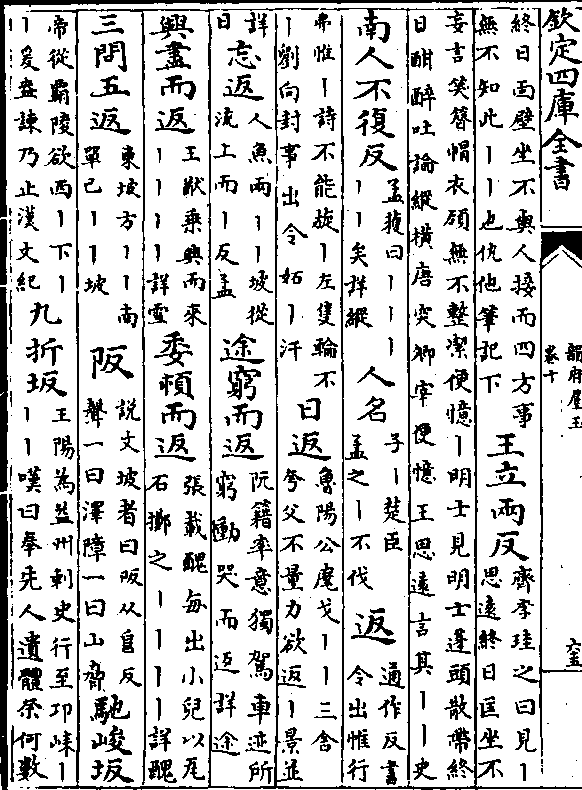 欽定四庫全書
韻府羣玉
卷十
終日面壁坐不與人接而四方事
無不知此丨丨也仇他筆記下
王立兩反
齊李珪之曰見丨
思遠終日匡坐不
妄言笑簪帽衣領無不整潔便憶丨明士見明士蓬頭散帶終
日酣醉吐論縱橫唐突卿宰便憶王思遠言其丨丨史
南人不復反
孟獲曰丨丨丨
丨丨矣詳縱
人名
子丨楚臣
孟之丨不伐
返
通作反書
令出惟行
弗惟丨詩不能旋丨左隻輪不
丨劉向封事出令如丨汗
日返
魯陽公麾戈丨丨三舍
夸父不量力欲返丨景並
詳
日
忘返
人魚兩丨丨坡從
流上而丨反孟
途窮而返
阮籍率意獨駕車迹所
窮慟哭而返詳途
興盡而返
王猷乘興而來
丨丨丨丨詳雪
委頓而返
張載醜每出小兒以瓦
石擲之丨丨丨丨詳醜
三問五返
東坡方丨丨南
單已丨丨坡
阪
說文坡者曰阪从𨸏反
聲一曰澤障一曰山脅
馳峻坂
帝從霸陵欲西丨下丨
丨爰盎諫乃止漢文紀
九折坂
王陽為益州刺史行至邛崍丨
丨丨嘆曰奉先人遺體柰何數